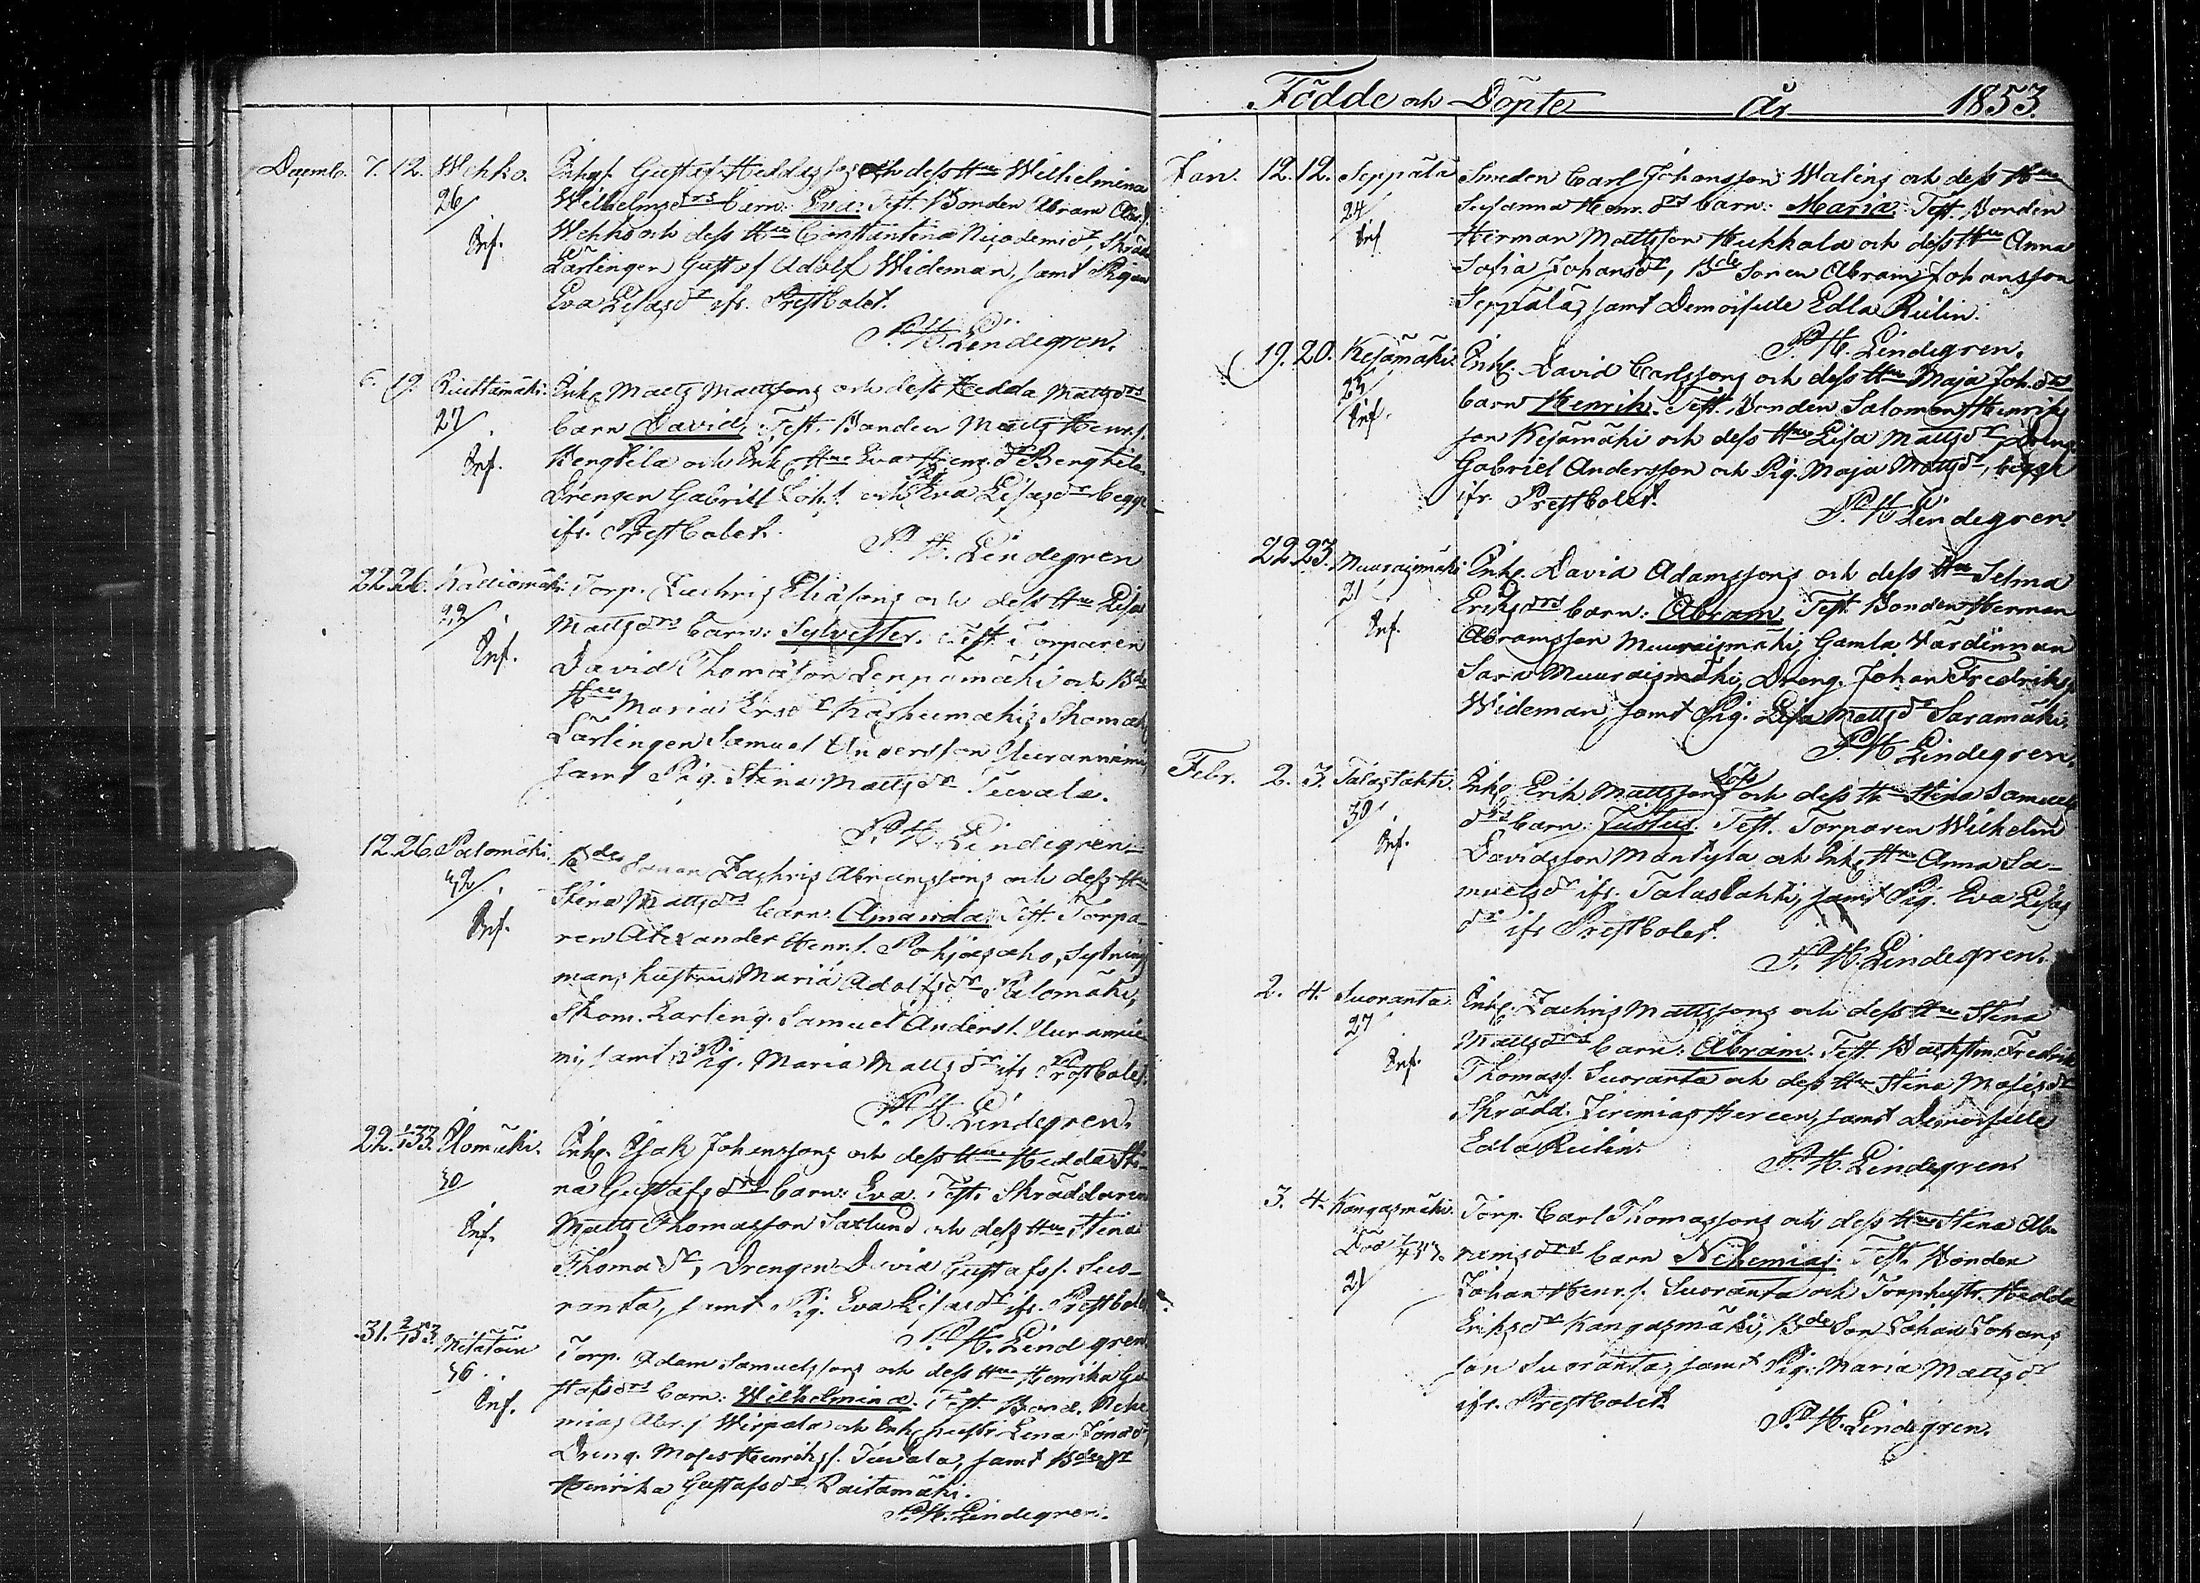 Decemb. 7. 12. Wehko. Inhys. Gustaf Heddas sons och dess Hu Wilhelmina
26/ Wilhelmsdrs barn: Eva: Test. Bonden Abram Abr.s.
Inf. Wehko och dess Hu Constantina Nicodemi dr, Skrädd.
Lärlingen Gustaf Adolf Wideman, samt Pigan
Eva Lisasdr ifr. Prestbolet.
P. H. Lindegren.
6. 19. Inh. Matts Mattssons och dess Hedda Mattsdrs
27/ barn David, Test. Bonden Matts Henr.s.
Inf. Bengtila och Inh. Hu Eva dr Bengtila
Drengen Gabriel Joh.s. och Pig. Eva Lisasdr begge
ifr. Prestbolet.
P. H. Lindegren
22. 26. Kalliomäki. Torp. Zachris Eliäsons och dess Hu Lisa
22/ Mattsdrs barn: Sylvester. Test. Torparen
Inf. David Thomasson Lenpämäki och Bde
Hu Maria Ersdr Kaskumäki, Skomak
Lärlingen Samuel Andersson Uuranniemi
samt Pig. Stina Mattsdr Tuvala.
P. H. Lindegren
12. 26. Palomäki. Bde Sonen Zachris Abramssons och dess Hu
42/ Stina Mattsdrs barn: Amanda: Test. Torpa-
Inf. ren Alexander Henr.s. Pohjoisaho, Sytnings
mans hustrun Maria Adolfsdr Palomäki,
Skom. Lärling. Samuel Anders s. Uurannie
mi, samt Pig. Maria Mattsdr ifr. Prestbolet.
P. H. Lindegren.
22. 1/1 53. Ulomäki. Inh. Isak Johanssons och dess Hu Hedda Sti-
30/ na Gustafsdrs barn: Eva. Test. Skräddaren
Inf. Matts Thomasson Saxlund och dess Hu Stina
Thomasdr, Drengen David Gustafs s. Suo-
ranta, samt Pig. Eva Lisasdr ifr. Prestbolet
P. H. Lindegren
31. 2/1 53. Torp. Adam Samuelssons och dess Hu Henrika Gu-
36. stafsdrs barn: Wilhelmina. Test. Bond. Nehe
Inf. mias Abr.s. Wirpala och Inh. hustr. Lena Jonasdr,
Dreng. Moses Henriks s. Tuvala, samt Bde dr
Henrika Gustafsdr Raitamäki.
P. H. Lindegren.
Födde och Döpte år 1853.
Jan. 12. 12. Seppälä Smeden Carl Johansson Walens och dess Hu
24/ Susanna Henr.drs barn: Maria. Test. Bonden
Inf. Herman Mattsson Huhkala och dess Hu Anna
Sofia Johansdr, Bde Sonen Abram Johansson
Seppälä, samt Demoiselle Edla Reilin.
P. H. Lindegren.
19. 20. Kesämäki. Inh. David Carlssons och dess Hu Maja Joh.drs
23/ barn Henrik. Test. Bonden Salomon Henriks
Inf. son Kesämäki och dess Hu Lisa Mattsdr, Dreng.
Gabriel Andersson och Pig. Maja Mattsdr, begge
ifr. Prestbolet.
P. H. Lindegren.
22. 23. Muuraismäki Inh. David Adamssons och dess Hu Selma
21/ Eriksdrs barn: Abram. Test. Bonden Herman
Inf. Abramsson Muuraismäki, Gamla Värdinnan
Sara Muuraismäki, Dreng. Johan Fredriks s.
Wideman, samt Pig. Lisa Mattsdr Saramäki.
P. H. Lindegren.
Febr. 2. 3. Talaslahti. Inh. Erik Mattssons Löfs och dess H. Stina Samuels
30/ drs barn: Justus. Test. Torparen Wilhelm
Inf. Davidsson Mäntylä och Inh. Hu Anna Sa-
muelsdr ifr. Talaslahti, samt Pig. Eva Lisas
dr ifr. Prestbolet.
P. H. Lindegren.
2. 4. Suoranta. Inh. Zachris Mattssons och dess Hu Stina
27/ Mattsdrs barn: Abram. Test. Wachtm. Fredrik
Inf. Thomas s. Suoranta och dess Hu Stina Mosisdr
Skrädd. Jeremias Hereen, samt Demoiselle
Edla Reilin.
P. H. Lindegren.
3. 4. Kangasmäki. Torp. Carl Thomassons och dess Hu Stina Ab-
ramsdrs barn Nehemias. Test. Bonden
21/ Johan Henr.s. Suoranta och Torp.hustr. Hedda
Eriksdr Kangasmäki, Bde Son Johan Johans
son Suoranta, samt Pig. Maria Mattsdr
ifr. Prestbolet.
P. H. Lindegren.